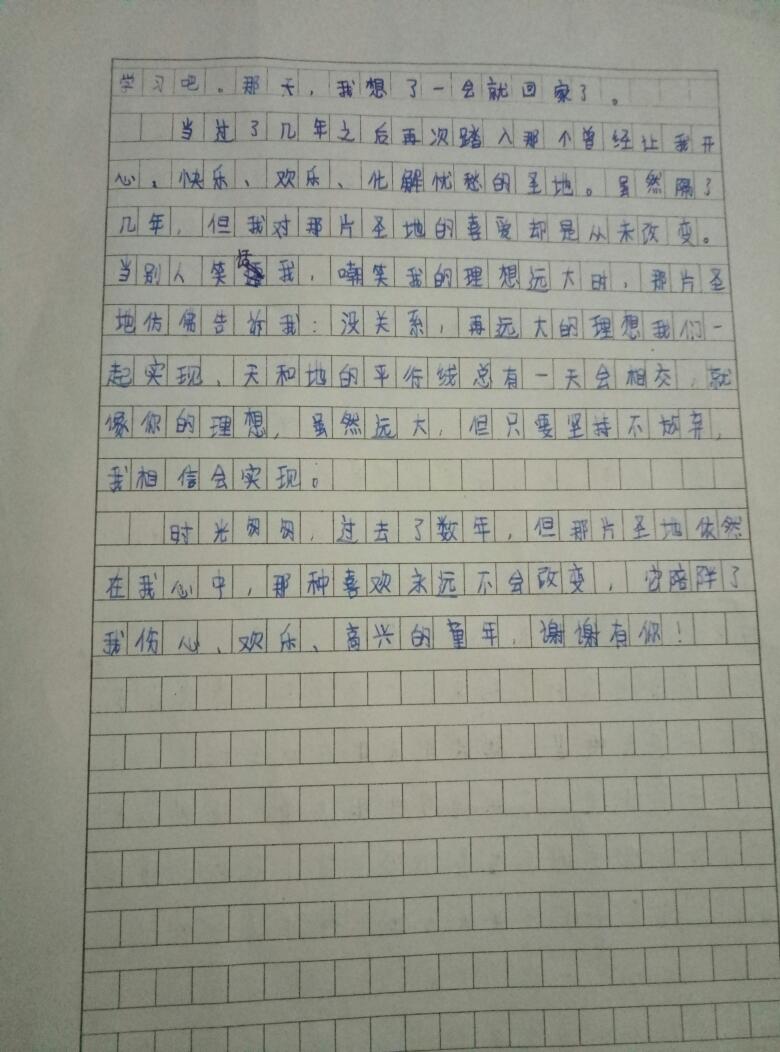 学习吧。那天，我想了一会就回家了。
当过了几年之后再次踏入那个曾经让我开
心、快乐、欢乐、化解忧愁的圣地。虽然隔了
几年，但我对那片圣地的喜爱却是从未改变。
当别人笑话我，嘲笑我的理想远大时，那片圣
地仿佛告诉我：没关系，再远大的理想我们一
起实现、天和地的平行线总有一天会相交，就
像你的理想，虽然远大，但只要坚持不放弃，
我相信会实现。
时光匆匆，过去了数年，但那片圣地依然
在我心中，那种喜欢永远不会改变，它陪陪了
我伤心、欢乐、高兴的童年，谢谢有你！